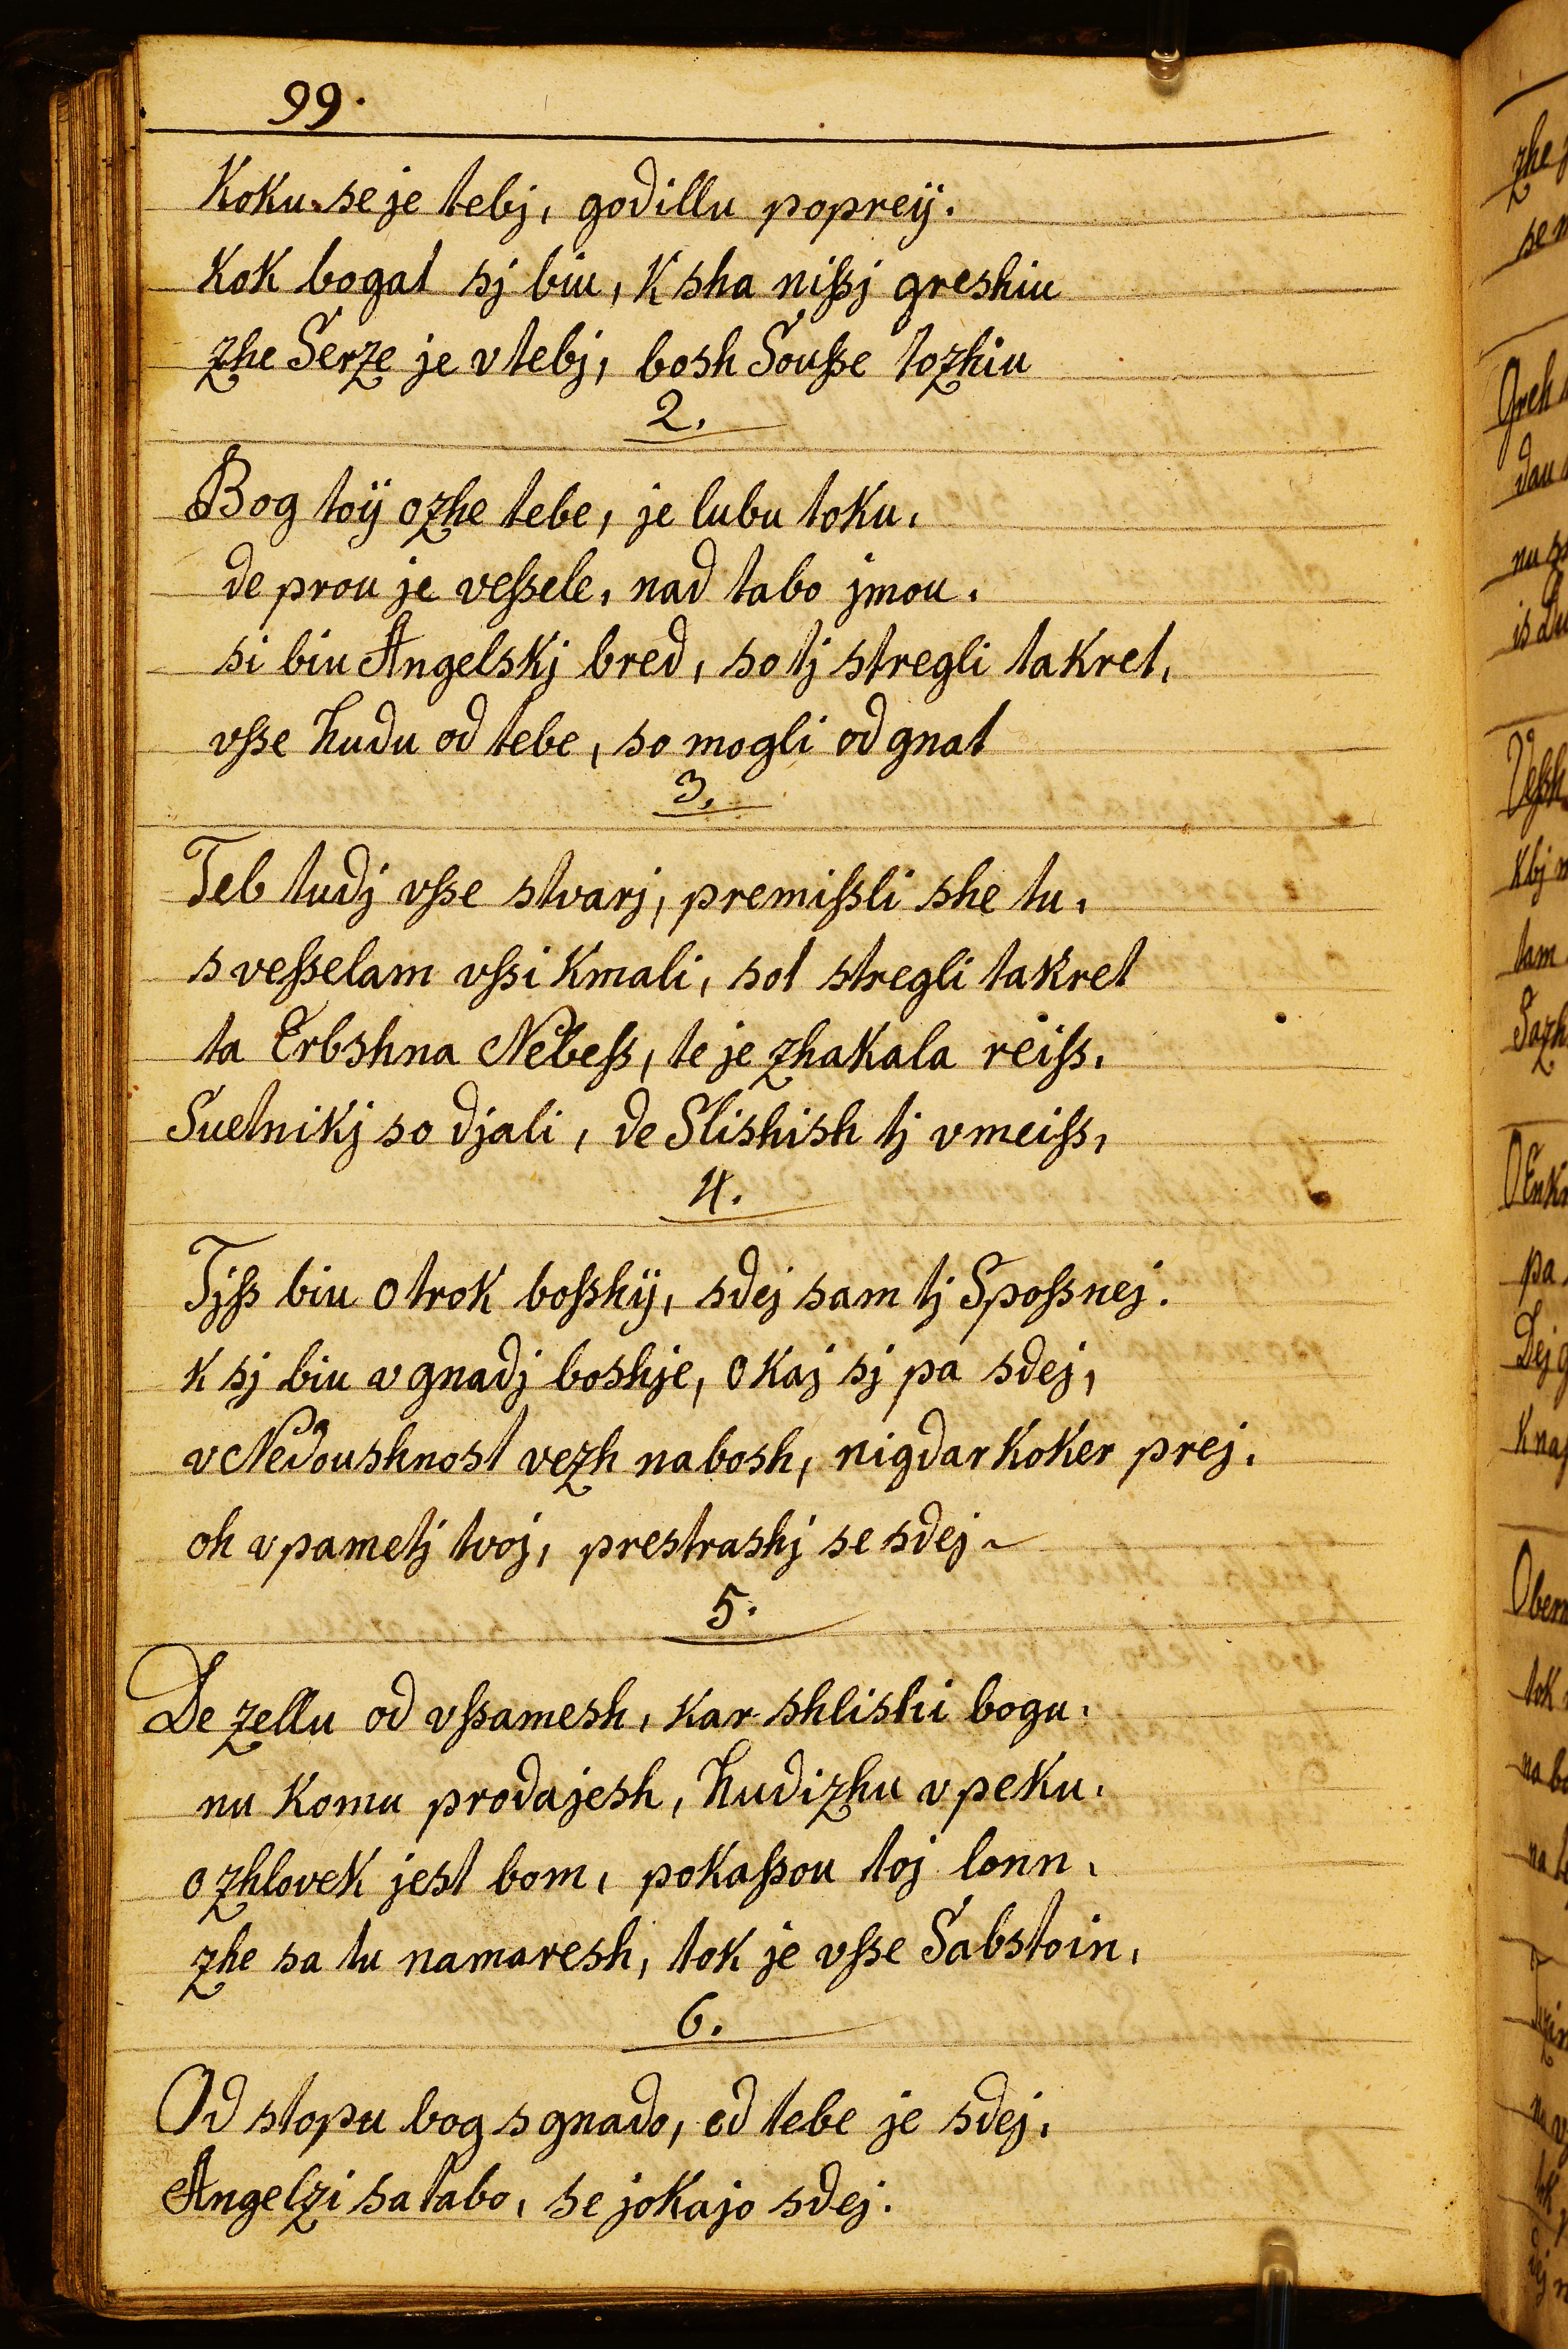 99.
Koku se je tebj, godillu popreÿ.
Kok bogat sj biu, K sha nißj greshiu
zhe Serze je v tebj, bosh Souße tozhiu
2.
Bog toÿ ozhe tebe, je lubu toku,
de prou je veßele, nad tabo jmou,
si biu Angelskj bred, so tj stregli takret,
vße hudu od tebe, so mogli od gnat
3.
Teb tudj vße stvarj, premißli she tu,
s veßelam vßi Kmali, sot stregli takret
ta Erbshna Nebeß, te je zhakala reiß,
Suetnikj so djali, de Slishish tj vmeiß,
4.
Tjß biu otrok boßhÿ, sdej sam tj Spoßnej.
k sj biu v gnadj boshje, o kaj sj pa sdej,
v Nedoushnost vezh nabosh, nigdar koker prej,
oh v pametj tvoj, prestrashj se sdej ~
5.
De zellu od vßamesh, kar shlishi bogu,
nu komu prodajesh, hudizhu v peku,
o zhlovek jest bom, pokaßou toj lonn,
zhe sa tu namaresh, tok je vße Sabstoin,
6.
Od stopu bog s gnado, od tebe je sdej,
Angelzi sa tabo, se jokajo sdej.